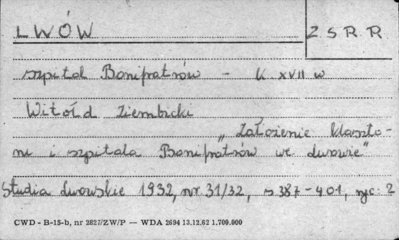 LWÓW
Z S R R
szpital Bonifratrów - K. XVII w
Witold Ziembicki
„Założenie klaszto-
ru i szpitala Bonifratrów we Lwowie"
Studia Lwowskie 1932, nr. 31/32, s 387-401, ryc. 2
CWD - B-15-b, nr 2827/ZW/P — WDA 2694 13.12.62 1.700.000